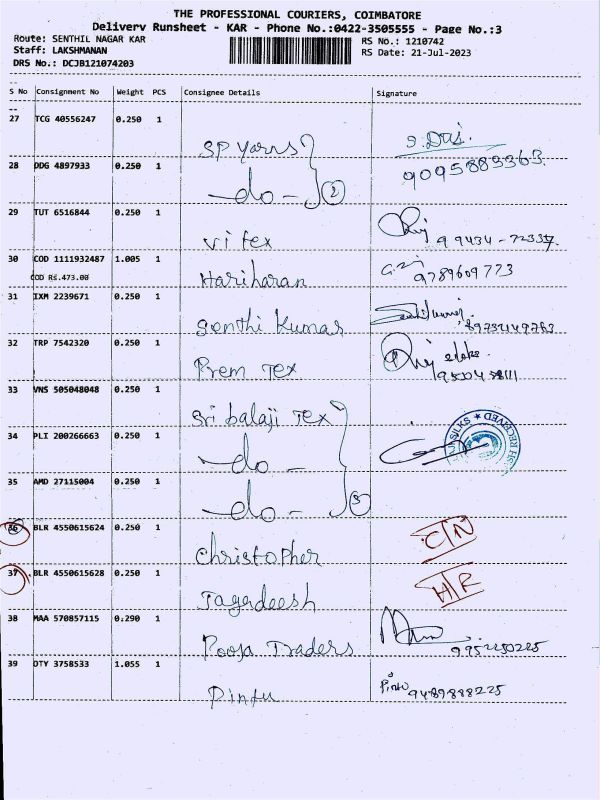 THE PROFESSIONAL COURIERS, COIMBATORE
Delivery Runsheet - KAR - Phone No.:0422-3505555 - Page No.:3
Route: SENTHIL NAGAR KAR RS No.: 1210742
Staff: LAKSHMANAN RS Date: 21-Jul-2023
DRS No.: DCJB121074203
S No Consignment No Weight PCS Consignee Details Signature
27 TCG 40556247 0.250 1 SP Yarns S. Das.
28 DDG 4897933 0.250 1 -do- 2 9095883363.
29 TUT 6516844 0.250 1 Vi tex 99434-72337
30 COD 1111932487 1.005 1 Hariharan 9789609773
COD Rs.473.00
31 IXM 2239671 0.250 1 Senthi Kumar
32 TRP 7542320 0.250 1 Prem Tex
33 VNS 505048048 0.250 1 Sri balaji Tex
34 PLI 200266663 0.250 1 -do- RECEIVED
35 AMD 27115004 0.250 1 -do- 3
36 BLR 4550615624 0.250 1 Christopher C/N
37 BLR 4550615628 0.250 1 Jagadeesh H/R
38 MAA 570857115 0.290 1 Pooja Traders
39 OTY 3758533 1.055 1 Pintu Pintu 9489888225